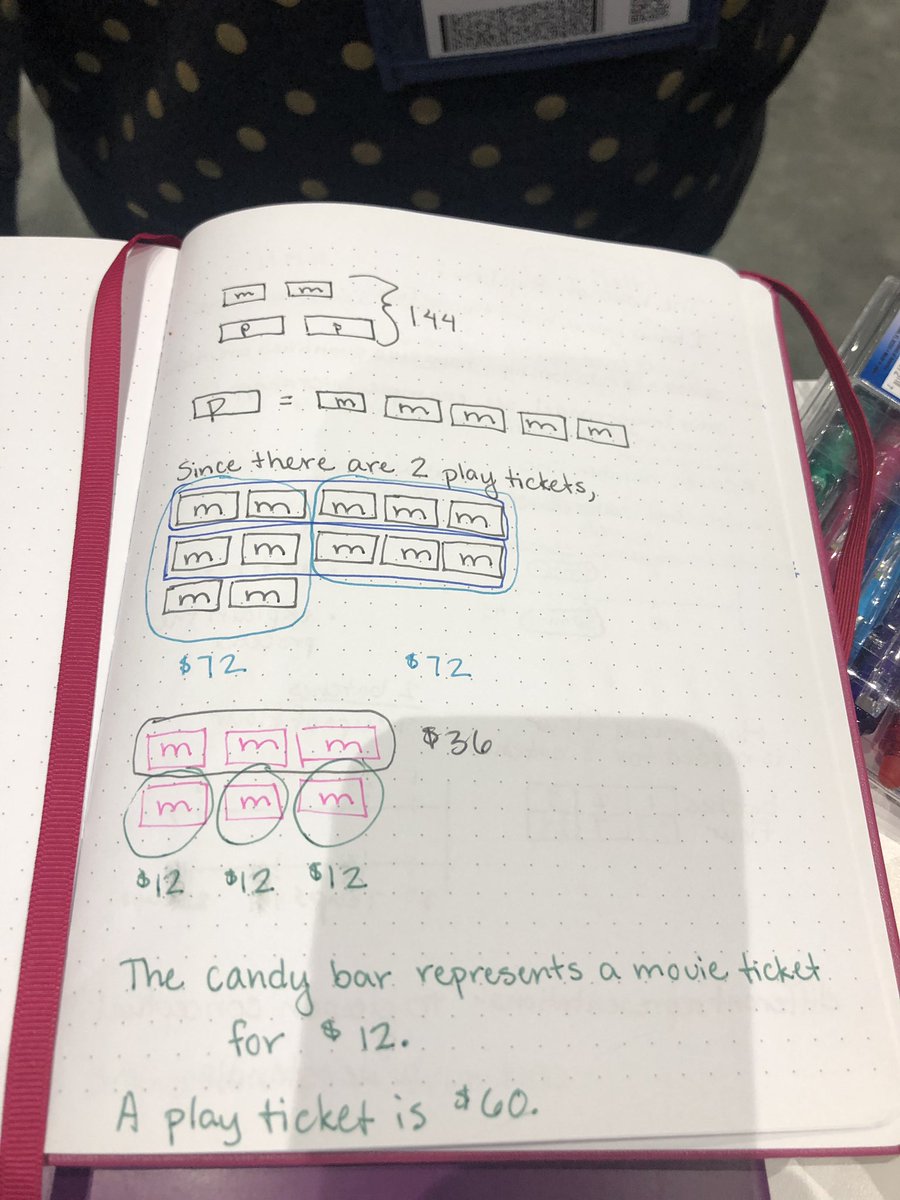 m m
p p } 144
p = m m m m m
Since there are 2 play tickets,
m m m m m
m m m m m
m m
$72 $72
m m m $36
m m m
$12 $12 $12
The candy bar represents a movie ticket
for $12.
A play ticket is $60.